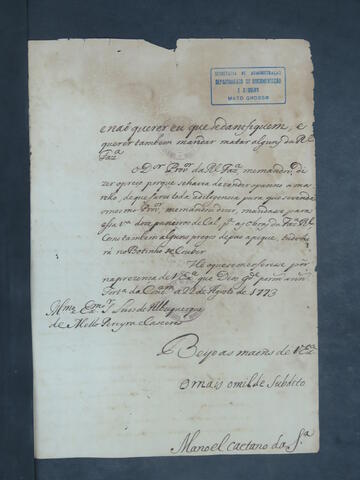 SECRETARIA DE ADMINISTRAÇÃO
DEPARTAMENTO DE DOCUMENTAÇÃO
E ARQUIVO
MATO GROSSO
e naõ querer eu que se danifiquem, e
querer tambem mandar matar alguns da Rl
Faza
O Dor Provor da Rl Faza me mandou di
zer o preço porque se havia de vender
que fara toda a deligencia para que se venda
o mesmo Provor me mandou dizer mandase para
essa Va doze
Com tambem alguns
rá no Botinho de Cuber
He o que se me oferese por
na prezensa de V Exa que Ds gde por m ans
Forta da Comam a 22 de Agosto de 1773
Illmo Exmo Sr Luis de Albuquerque
de Mello Pereyra e Caceres
Beyo as maens de V Exa
O mais omilde Subdito
Manoel Caetano da Sa